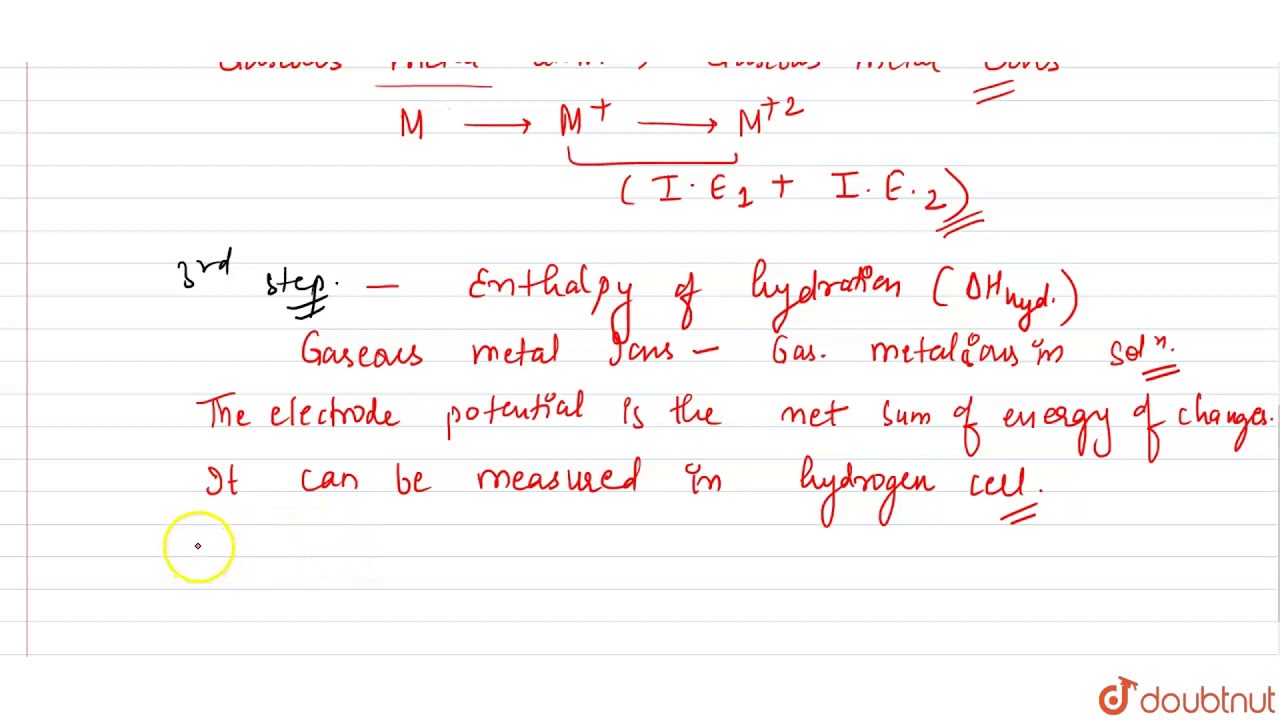 Gaseous metal
Gaseous metal ions
M ⟶ M⁺ ⟶ M⁺²
(I.E₁ + I.E.₂)
3rd step. – Enthalpy of hydration (ΔHhyd.)
Gaseous metal Ions – Gas. metal ions in solⁿ.
The electrode potential is the net sum of energy of changes.
It can be measured in hydrogen cell.
doubtnut